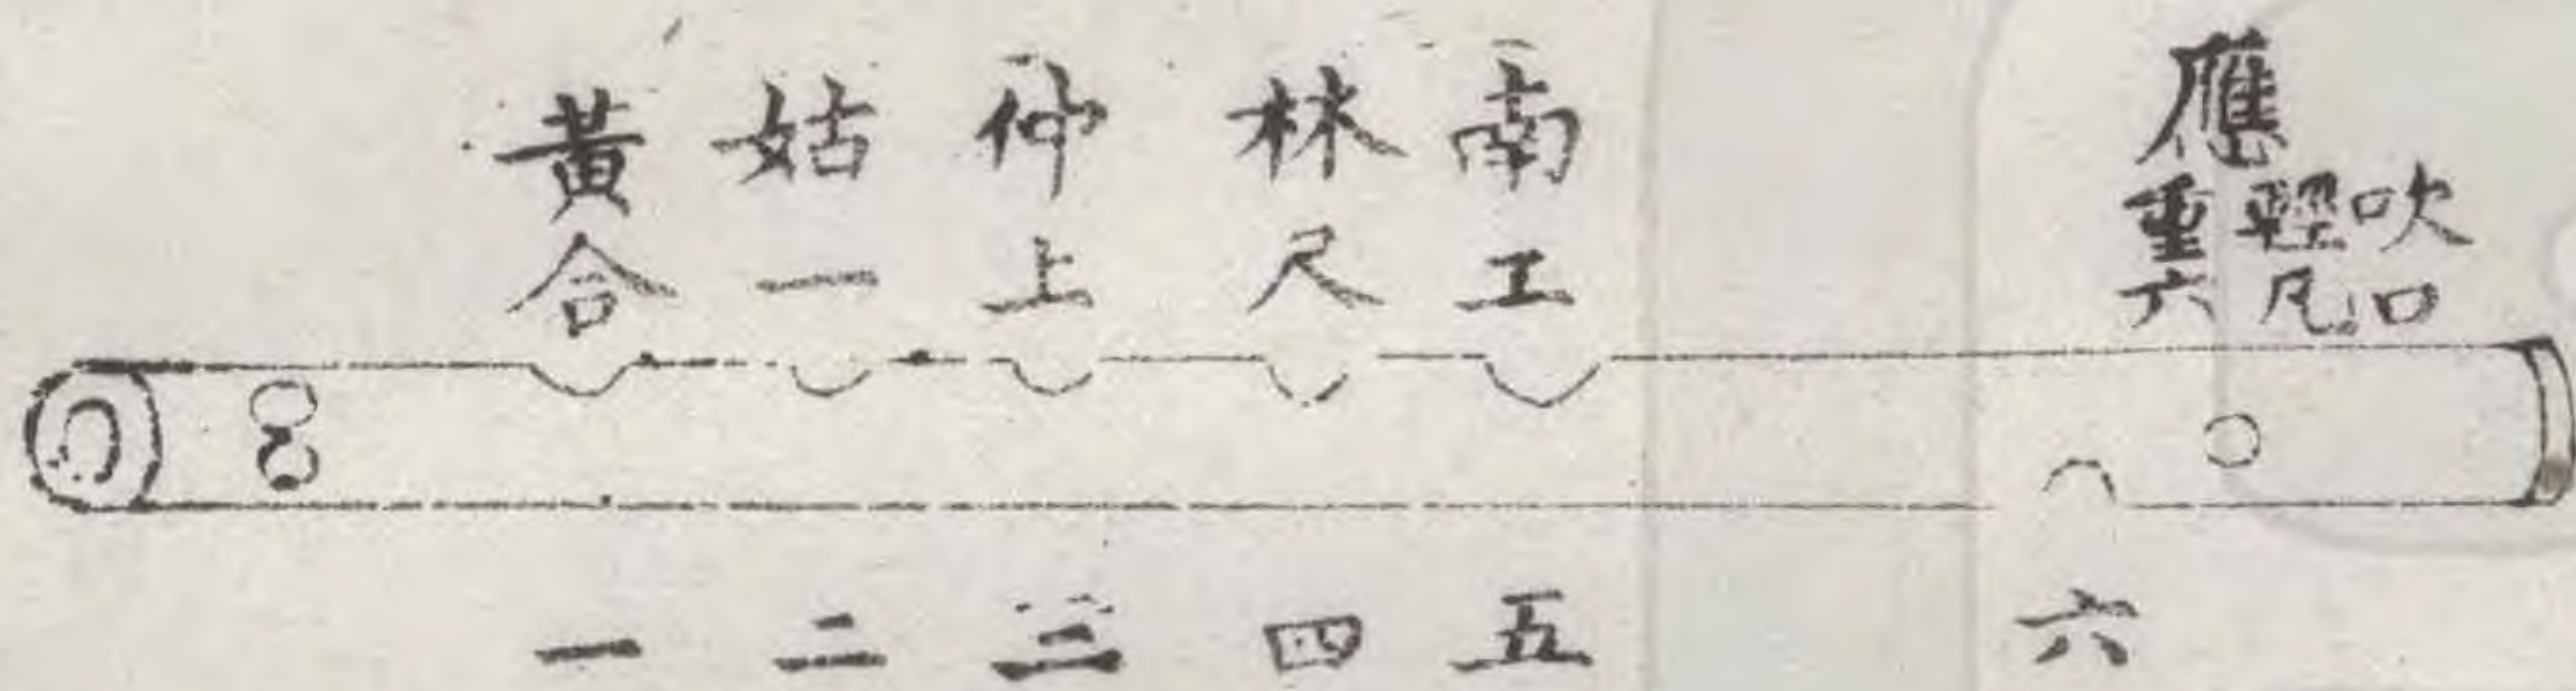 黃 姑 仲 林 南 應
合 一 上 尺 工 重六 輕凡 吹口
一 二 三 四 五 六